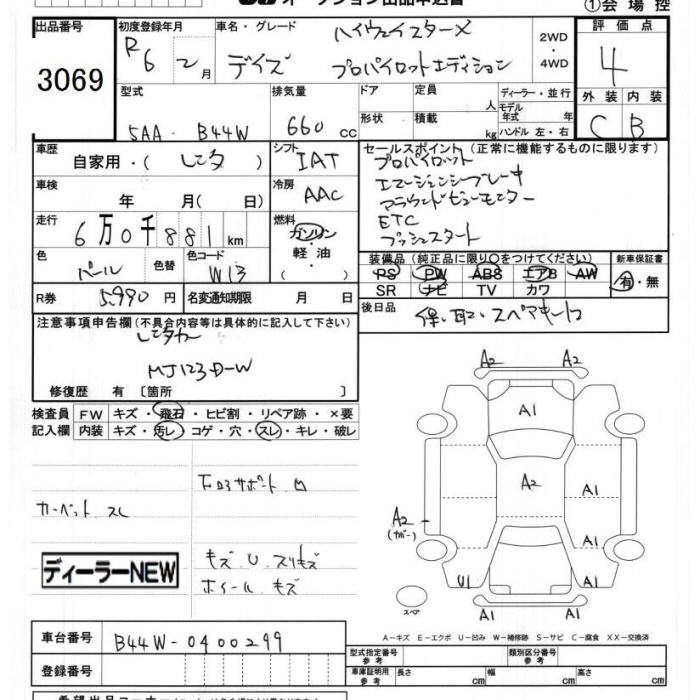 オークション出品申込書
①会場控
出品番号
3069
初度登録年月
R6 2月
車名・グレード
ハイウェイスターX
デイズ プロパイロットエディション
2WD
・
4WD
評価点
4
外装 内装
C B
型式
5AA - B44W
排気量
660 cc
ドア
形状
定員
人
積載
kg
ディーラー・並行
モデル
年式 年
ハンドル 左・右
車歴
自家用・(レンタ)
シフト
IAT
車検
年 月(日)
冷房
AAC
走行
6万0千881km
燃料
ガソリン
・
軽油
( )
色
パール
色替
色コード
W13
R券
5,990円
名変通知期限 月 日
セールスポイント(正常に機能するものに限ります)
プロパイロット
エマージェンシーブレーキ
アラウンドビューモニター
ETC
プッシュスタート
装備品(純正品に限り○をつけてください)
PS PW ABS エアB AW
SR ナビ TV カワ
新車保証書
有・無
後日品
保・取・スペアキー1コ
注意事項申告欄(不具合内容等は具体的に記入して下さい)
レンタカー
MJ123D-W
修復歴 有〔箇所 〕
検査員
記入欄
FW キズ・飛石・ヒビ割・リペア跡・×要
内装 キズ・汚レ・コゲ・穴・スレ・キレ・破レ
カーペット スレ
下回りサポート凹
ディーラーNEW
キズ・U・スリキズ
ホイールキズ
A2 A2
A1
A2
A1
A2
(カバー)
A1
U1
A1
A1 A1
スペア
A-キズ E-エクボ U-凹み W-補修跡 S-サビ C-腐食 XX-交換済
車台番号
B44W-0400299
登録番号
型式指定番号
参考
類別区分番号
参考
車庫証明用
参考
長さ cm
幅 cm
高さ cm